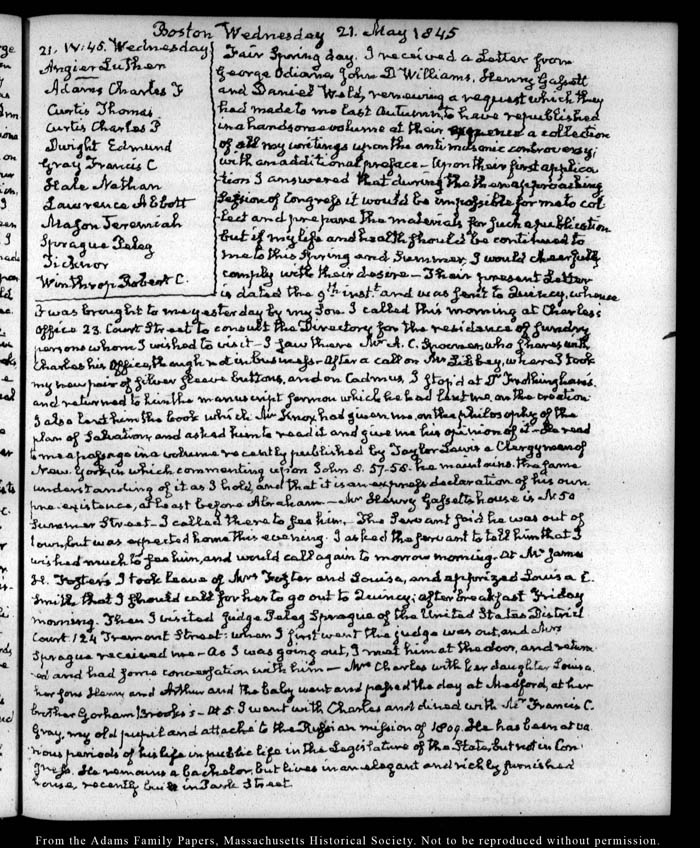 Boston Wednesday 21. May 1845
21. IV:45. Wednesday
Angier Luther
Adams Charles F
Curtis Thomas
Curtis Charles P
Dwight Edmund
Gray Francis C
Hale Nathan
Lawrence Abbott
Mason Jeremiah
Sprague Peleg
Ticknor
Winthrop Robert C.
Fair Spring day. I received a Letter from
George Odiorne, John D Williams, Henry Gassett
and Daniel Weld, renewing a request which they
had made to me last Autumn, to have republished
in a handsome volume at their expence a collection
of all my writings upon the anti masonic controversy;
with an additional preface – Upon their first applica
tion I answered that during the then approaching
Session of Congress it would be impossible for me to col
lect and prepare the materials for such a publication
but if my life and health should be continued to
me to this Spring and Summer, I would cheerfully
comply with their desire – Their present Letter
is dated the 9th. inst.t and was sent to Quincy, whence
it was brought to me yesterday by my Son. I called this morning at Charles's
Office 23. Court Street to consult the Directory for the residence of sundry
persons whom I wished to visit – I saw there Mr. A. C. Spooner, who shares with
Charles his Office, though not in business – After a call on Mr Libbey, where I took
my new pair of silver sleeve buttons, and on Cadmus, I stop'd at Dr Frothingham's.
and returned to him the manuscript sermon which he had lent me, on the creation
I also lent him the book which Mr Knox, had given me, on the philosophy of the
plan of Salvation, and asked him to read it and give me his opinion of it – He read
to me a passage in a volume recently published by Taylor Lewis a Clergyman of
New York, in which commenting upon John 8. 57-58. he maintains the same
understanding of it as I hold, and that it is an express declaration of his own
pre-existence, at least before Abraham – Mr Henry Gassett's house is No 50
Summer Street – I called there to see him. The Servant said he was out of
town, but was expected home this evening. I asked the servant to tell him that I
wished much to see him, and would call again to morrow morning. At Mr James
H. Foster's I took leave of Mrs Foster and Louisa, and apprized Louisa C.
Smith that I should call for her to go out to Quincy, after breakfast Friday
morning. Then I visited Judge Peleg Sprague of the United States District
Court 124 Tremont Street: when I first went the judge was out, and Mrs
Sprague received me – As I was going out, I met him at the door, and return
ed and had some conversation with him – Mrs Charles with her daughter Louisa,
her sons Henry and Arthur and the baby went and passed the day at Medford, at her
brother Gorham Brooks's – At 5. I went with Charles and dined with Mr Francis C.
Gray, my old pupil and attaché to the Russian mission of 1809. He has been at va
rious periods of his life in public life in the Legislature of the State, but not in Con
gress. He remains a bachelor, but lives in an elegant and richly furnished
house, recently built in Park Street.
From the Adams Family Papers, Massachusetts Historical Society. Not to be reproduced without permission.